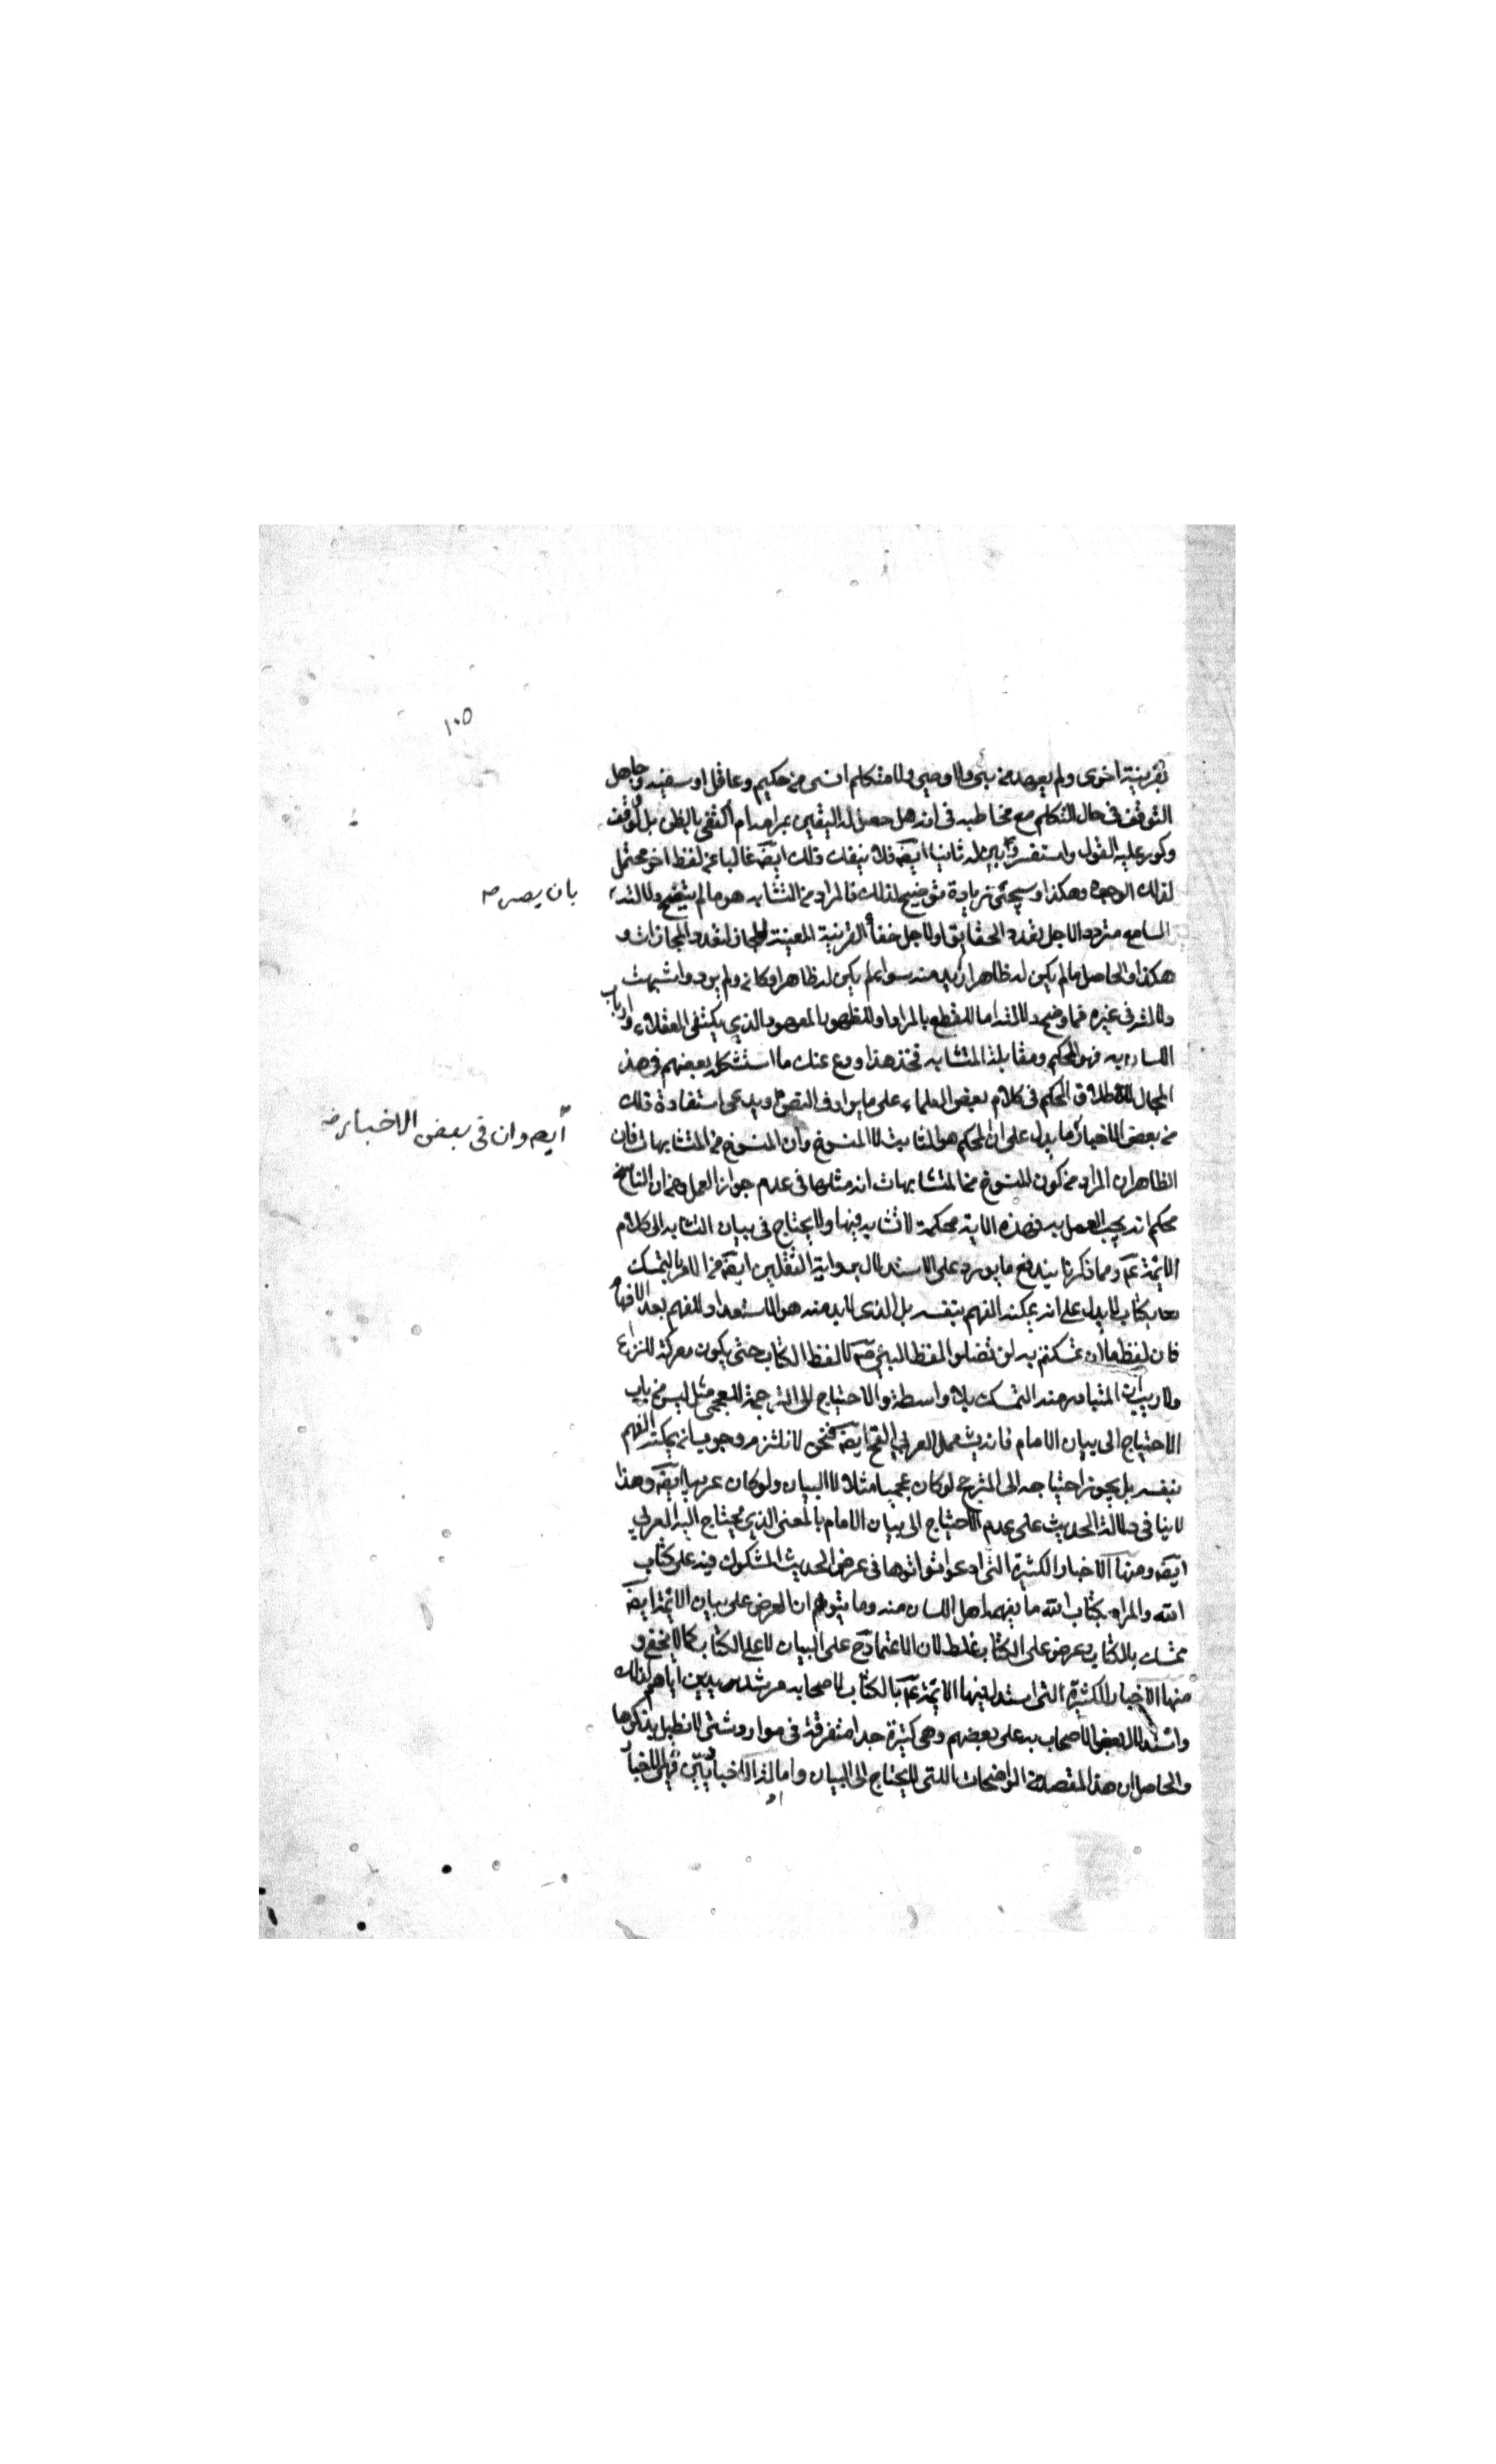 ١٠٥
بقرينة اخرى ولم يعهد من نبي ولا وصي ولا متكلم انسى من حكيم وعاقل او سفيه وجاهل
التوقف في حال التكلم مع مخاطبه في انه هل حصل له اليقين بمرامه ام اكتفى بالظن بل لو توقف
وكرر عليه القول واستفسر وبين له ثانيا ايضا فلا ينفك ذلك ايضا غالبا عن لفظ اخر محتمل
لذلك الوجوه وهكذا وسيجئ زيادة توضيح لذلك فالمراد من التشابه هو ما لم يتضح دلالته
بان يصير صه
السامع مترددا لاجل تعدد الحقايق او لاجل خفاء القرينة المعينة للمجاز لتعدد المجازات و
هكذا والحاصل ما لم يكن له ظاهر اريد منه سواء لم يكن له ظاهر او كان ولم يرد واشبهت
دلالته في غيره فما وضح دلالته اما للقطع بالمراد او للظهور المعهود الذي يكتفى العقلاء وارباب
اللسان به فهو المحكم ومقابله المتشابه فخذ هذا ودع عنك ما استشكله بعضهم في هذا
المجال لاطلاق المحكم في كلام بعض العلماء على ما يرادف النص ويدعى استفادة ذلك
من بعض الاخبار ما يدل على ان المحكم هو الثابت لا المنسوخ وان المنسوخ من المتشابهات فان
ايضه وان في بعض الاخبار صه
الظاهر ان المراد من كون المنسوخ من المتشابهات انه مثلها في عدم جواز العمل وعن ان الناسخ
محكم انه يجب العمل به فهذه الاية محكمة لا تشابه فيها ولا يحتاج في بيان التشابه الى كلام
الائمة عم ومما ذكرنا يندفع ما يورد على الاستدلال برواية الثقلين ايضا من الامر بالتمسك
بكتاب لا يدل على انه يمكنه الفهم بنفسه بل الذي لابد منه هو الاستعداد للفهم بعد الافهام
فان لفظ ما ان تمسكتم به لن تضلوا لفظ النبي ص لا لفظ الكتاب حتى يكون معركة للنزاع
ولا ريب ان المتبادر منه التمسك بلا واسطة والاحتياج الى الترجمة للعجمى مثل ليس من باب
الاحتياج الى بيان الامام فانه يشمل العربي القح ايضا فنحن لا نلتزم وجوب انه يمكنه الفهم
بنفسه بل يجوز احتياجه الى المترجم لو كان عجميا مثلا لا البيان ولو كان عربيا ايضا وهذا
لا ينافي دلالة الحديث على عدم الاحتياج الى بيان الامام بالمعنى الذي يحتاج اليه العربي
ايضا ومنها الاخبار الكثيرة التي ادعوا تواترها في عرض الحديث المشكوك فيه على كتاب
الله والمراد بكتاب الله ما يفهمه اهل اللسان منه وما يتوهم ان العرض على بيان الائمة ايضا
تمسك بالكتاب وعرض على الكتاب غلط لان الاعتماد ح على البيان لا على الكتاب كما لا يخفى و
منها الاخبار الكثيرة التي استدل فيها الائمة عم بالكتاب لاصحابه مرشدين اياهم لذلك
واستدلال بعض الاصحاب به على بعضهم وهي كثيرة جدا متفرقة في موارد شتى لا نطيل بذكرها
والحاصل ان هذا المقصد من الواضحات التي لا يحتاج الى البيان واما لذ الاخباريين فهى الاخبار